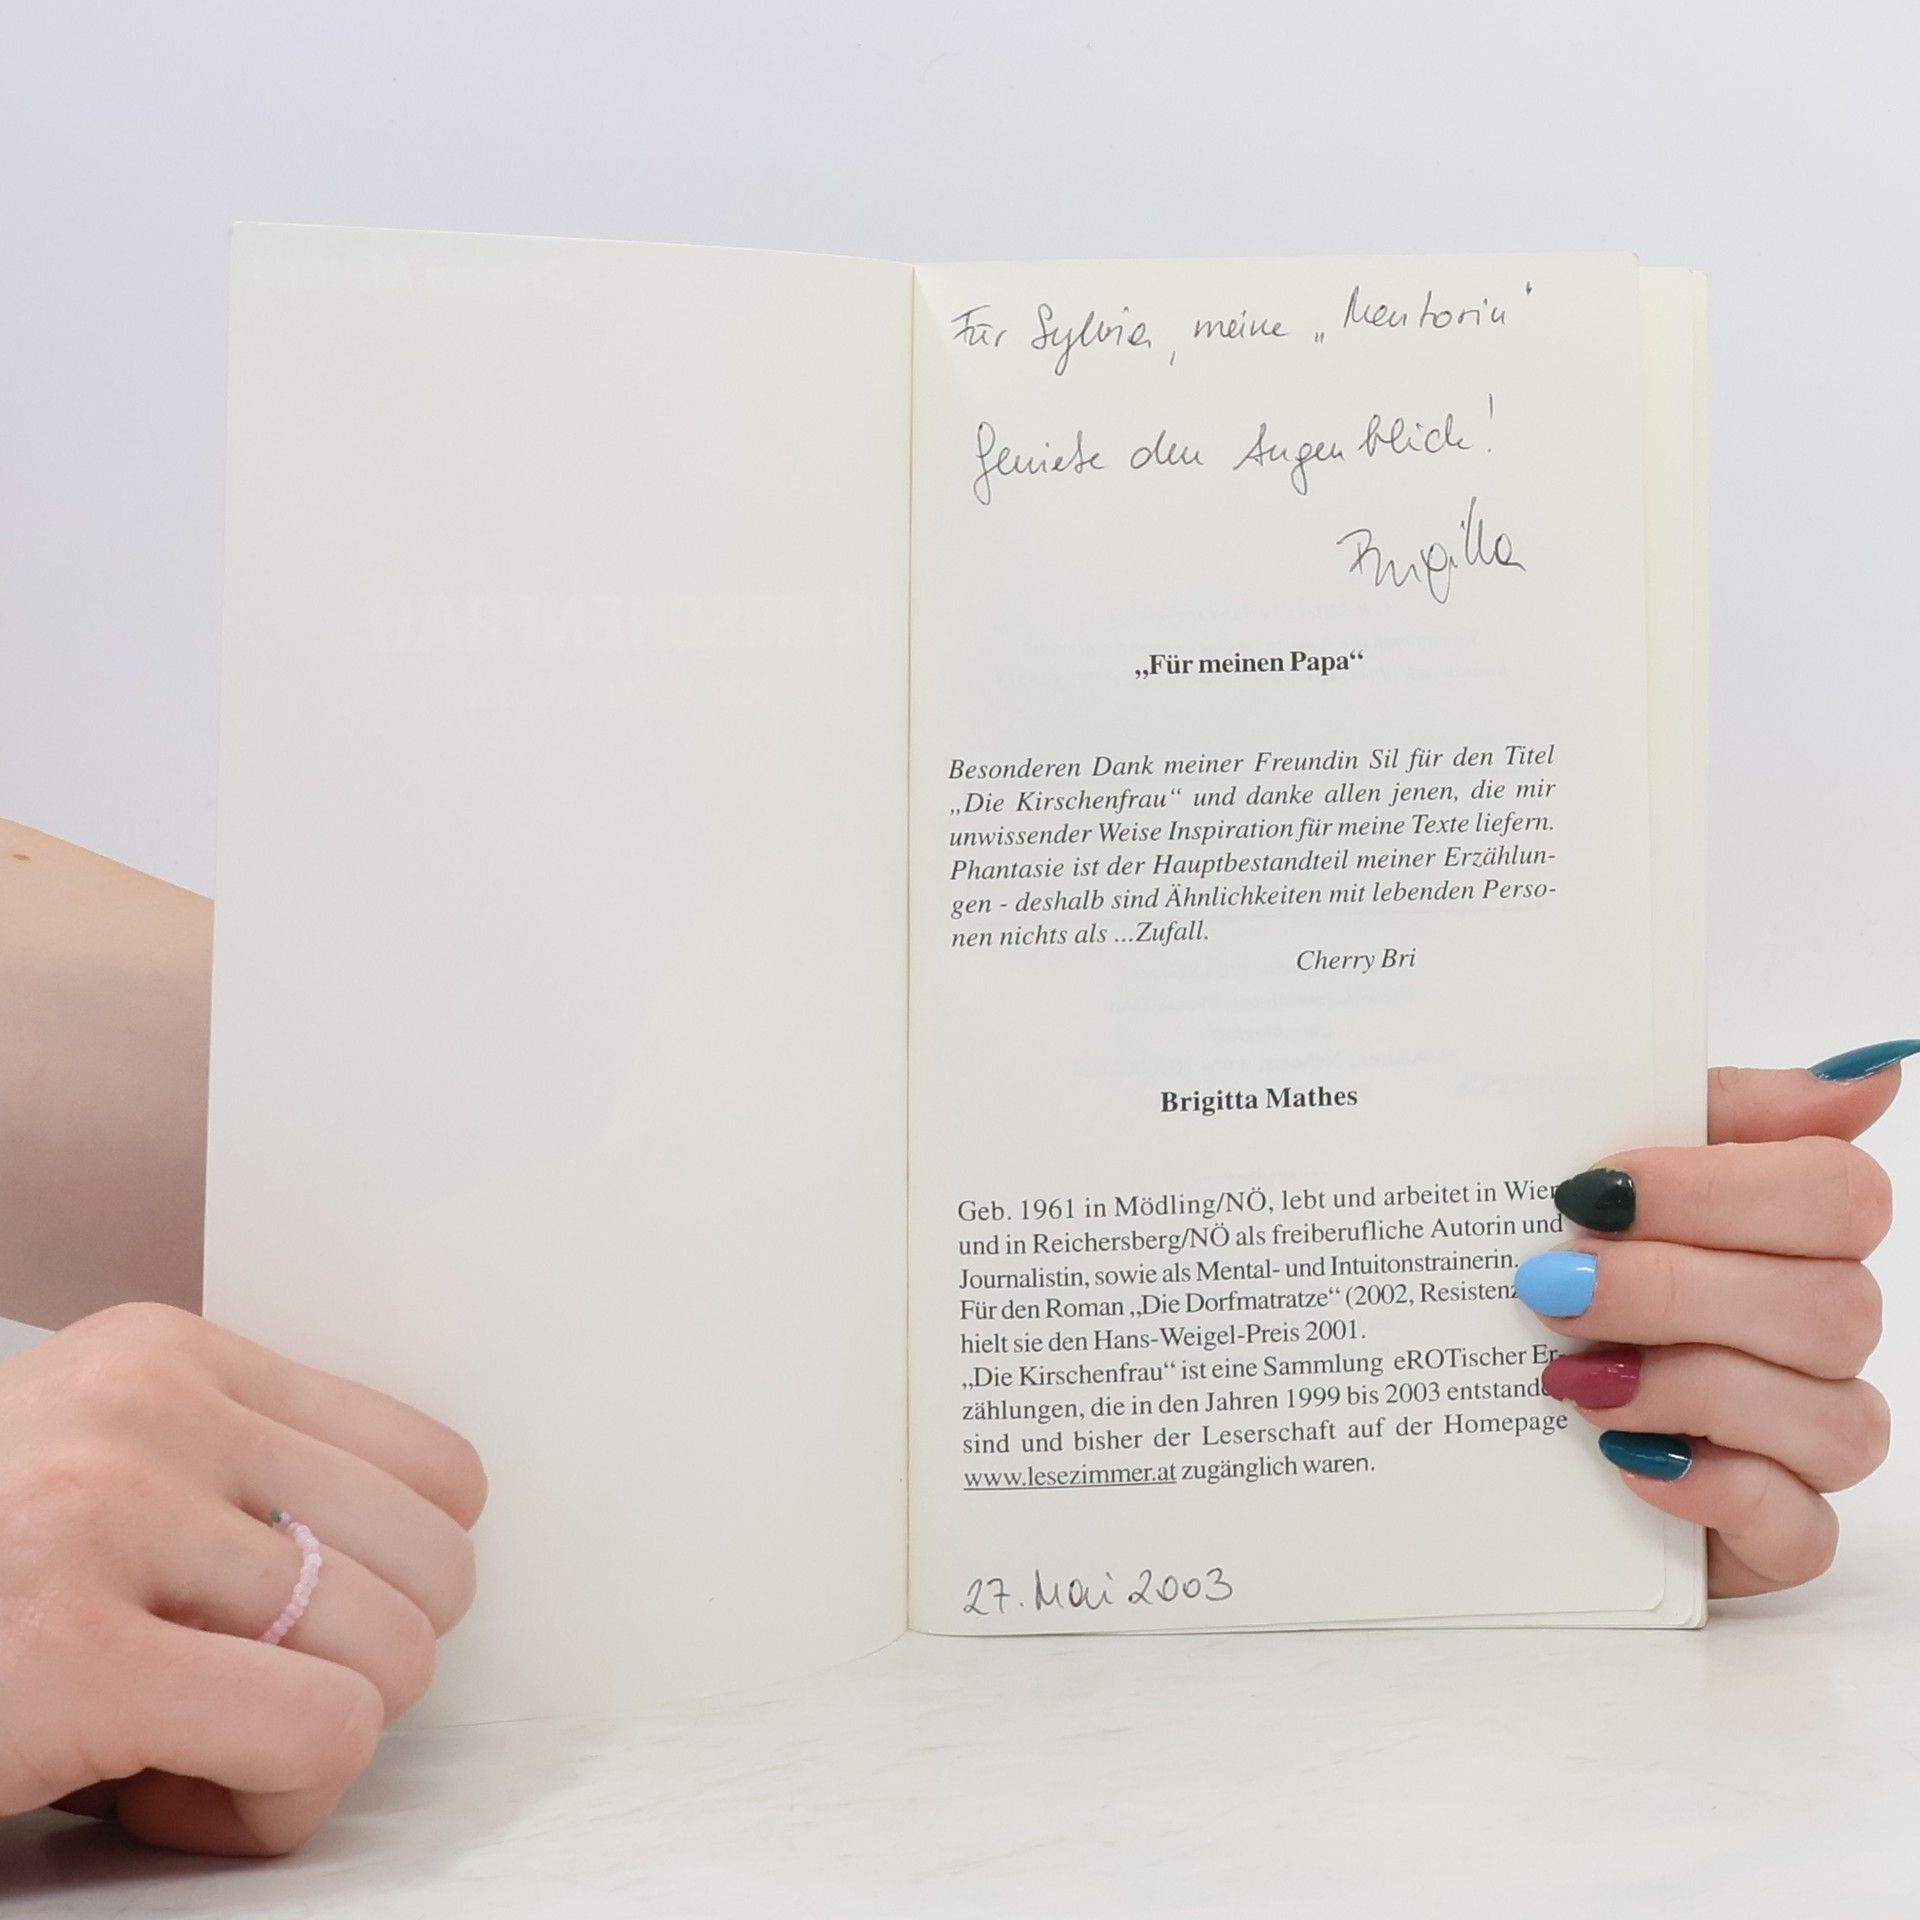 Für Sylvia, meine „Mentorin"
Genieße den Augenblick!
Brigitta
„Für meinen Papa“
Besonderen Dank meiner Freundin Sil für den Titel
„Die Kirschenfrau“ und danke allen jenen, die mir
unwissender Weise Inspiration für meine Texte liefern.
Phantasie ist der Hauptbestandteil meiner Erzählun-
gen - deshalb sind Ähnlichkeiten mit lebenden Perso-
nen nichts als ...Zufall.
Cherry Bri
Brigitta Mathes
Geb. 1961 in Mödling/NÖ, lebt und arbeitet in Wien
und in Reichersberg/NÖ als freiberufliche Autorin und
Journalistin, sowie als Mental- und Intuitonstrainerin.
Für den Roman „Die Dorfmatratze“ (2002, Resistenz
hielt sie den Hans-Weigel-Preis 2001.
„Die Kirschenfrau“ ist eine Sammlung eROTischer Er-
zählungen, die in den Jahren 1999 bis 2003 entstanden
sind und bisher der Leserschaft auf der Homepage
www.lesezimmer.at zugänglich waren.
27. Mai 2003